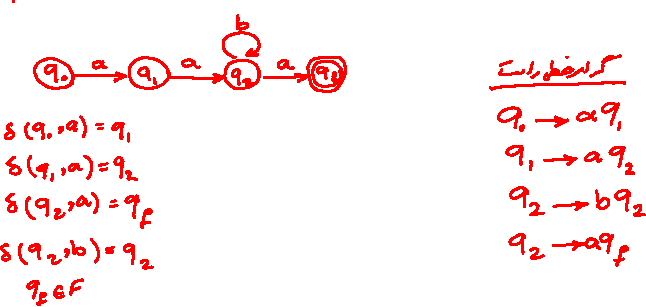 b
a a a
q₀ q₁ q₂ q_f
δ(q₀,a)=q₁
δ(q₁,a)=q₂
δ(q₂,a)=q_f
δ(q₂,b)=q₂
q_f ∈ F
گرامر خطی راست
q₀ → aq₁
q₁ → aq₂
q₂ → bq₂
q₂ → aq_f